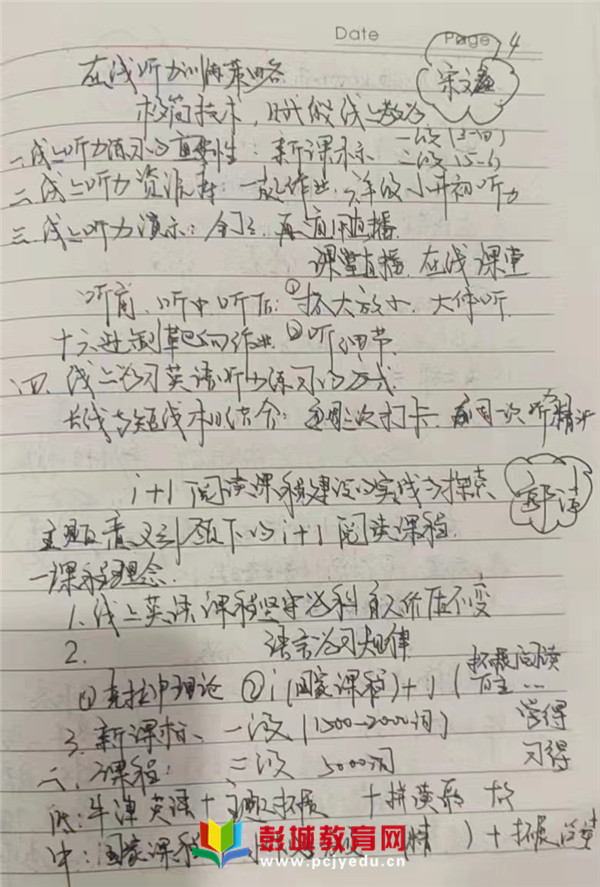 Date
Page 4
在线听力训练策略
宋文
极简技术,时代线上教
一、线上听力练习的重要性:新课标 一级(3-四)
二级(5-6)
二、线上听力资源库:作业,六年级小升初听力
三、线上听力演示: 再看用直播
课堂直播、在线课堂
听前、听中、听后:①抓大放小、大体听
十六进制靶向作业 ②听细节
四、线上学习英语听力练习的方式
长线与短线相结合:每周三次打卡、每周一次听精
i+1阅读课程建设的实践与探索
主题意义引领下的i+1阅读课程
一课程理念
1.线上英语课程坚守学科育人价值不变
2. 语言学习规律
①克拉申理论 ②i(国家课程)+1(拓展阅读
自主…
3.新课标、一级(1500-2000词) 学得
二、课程: 二级 5000词 习得
低:牛津英语+主题拓展+拼读
中:国家课程 (精 )+拓展
彭城教育网
www.pcjyedu.cn